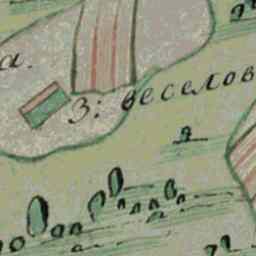 а.
3: веселов